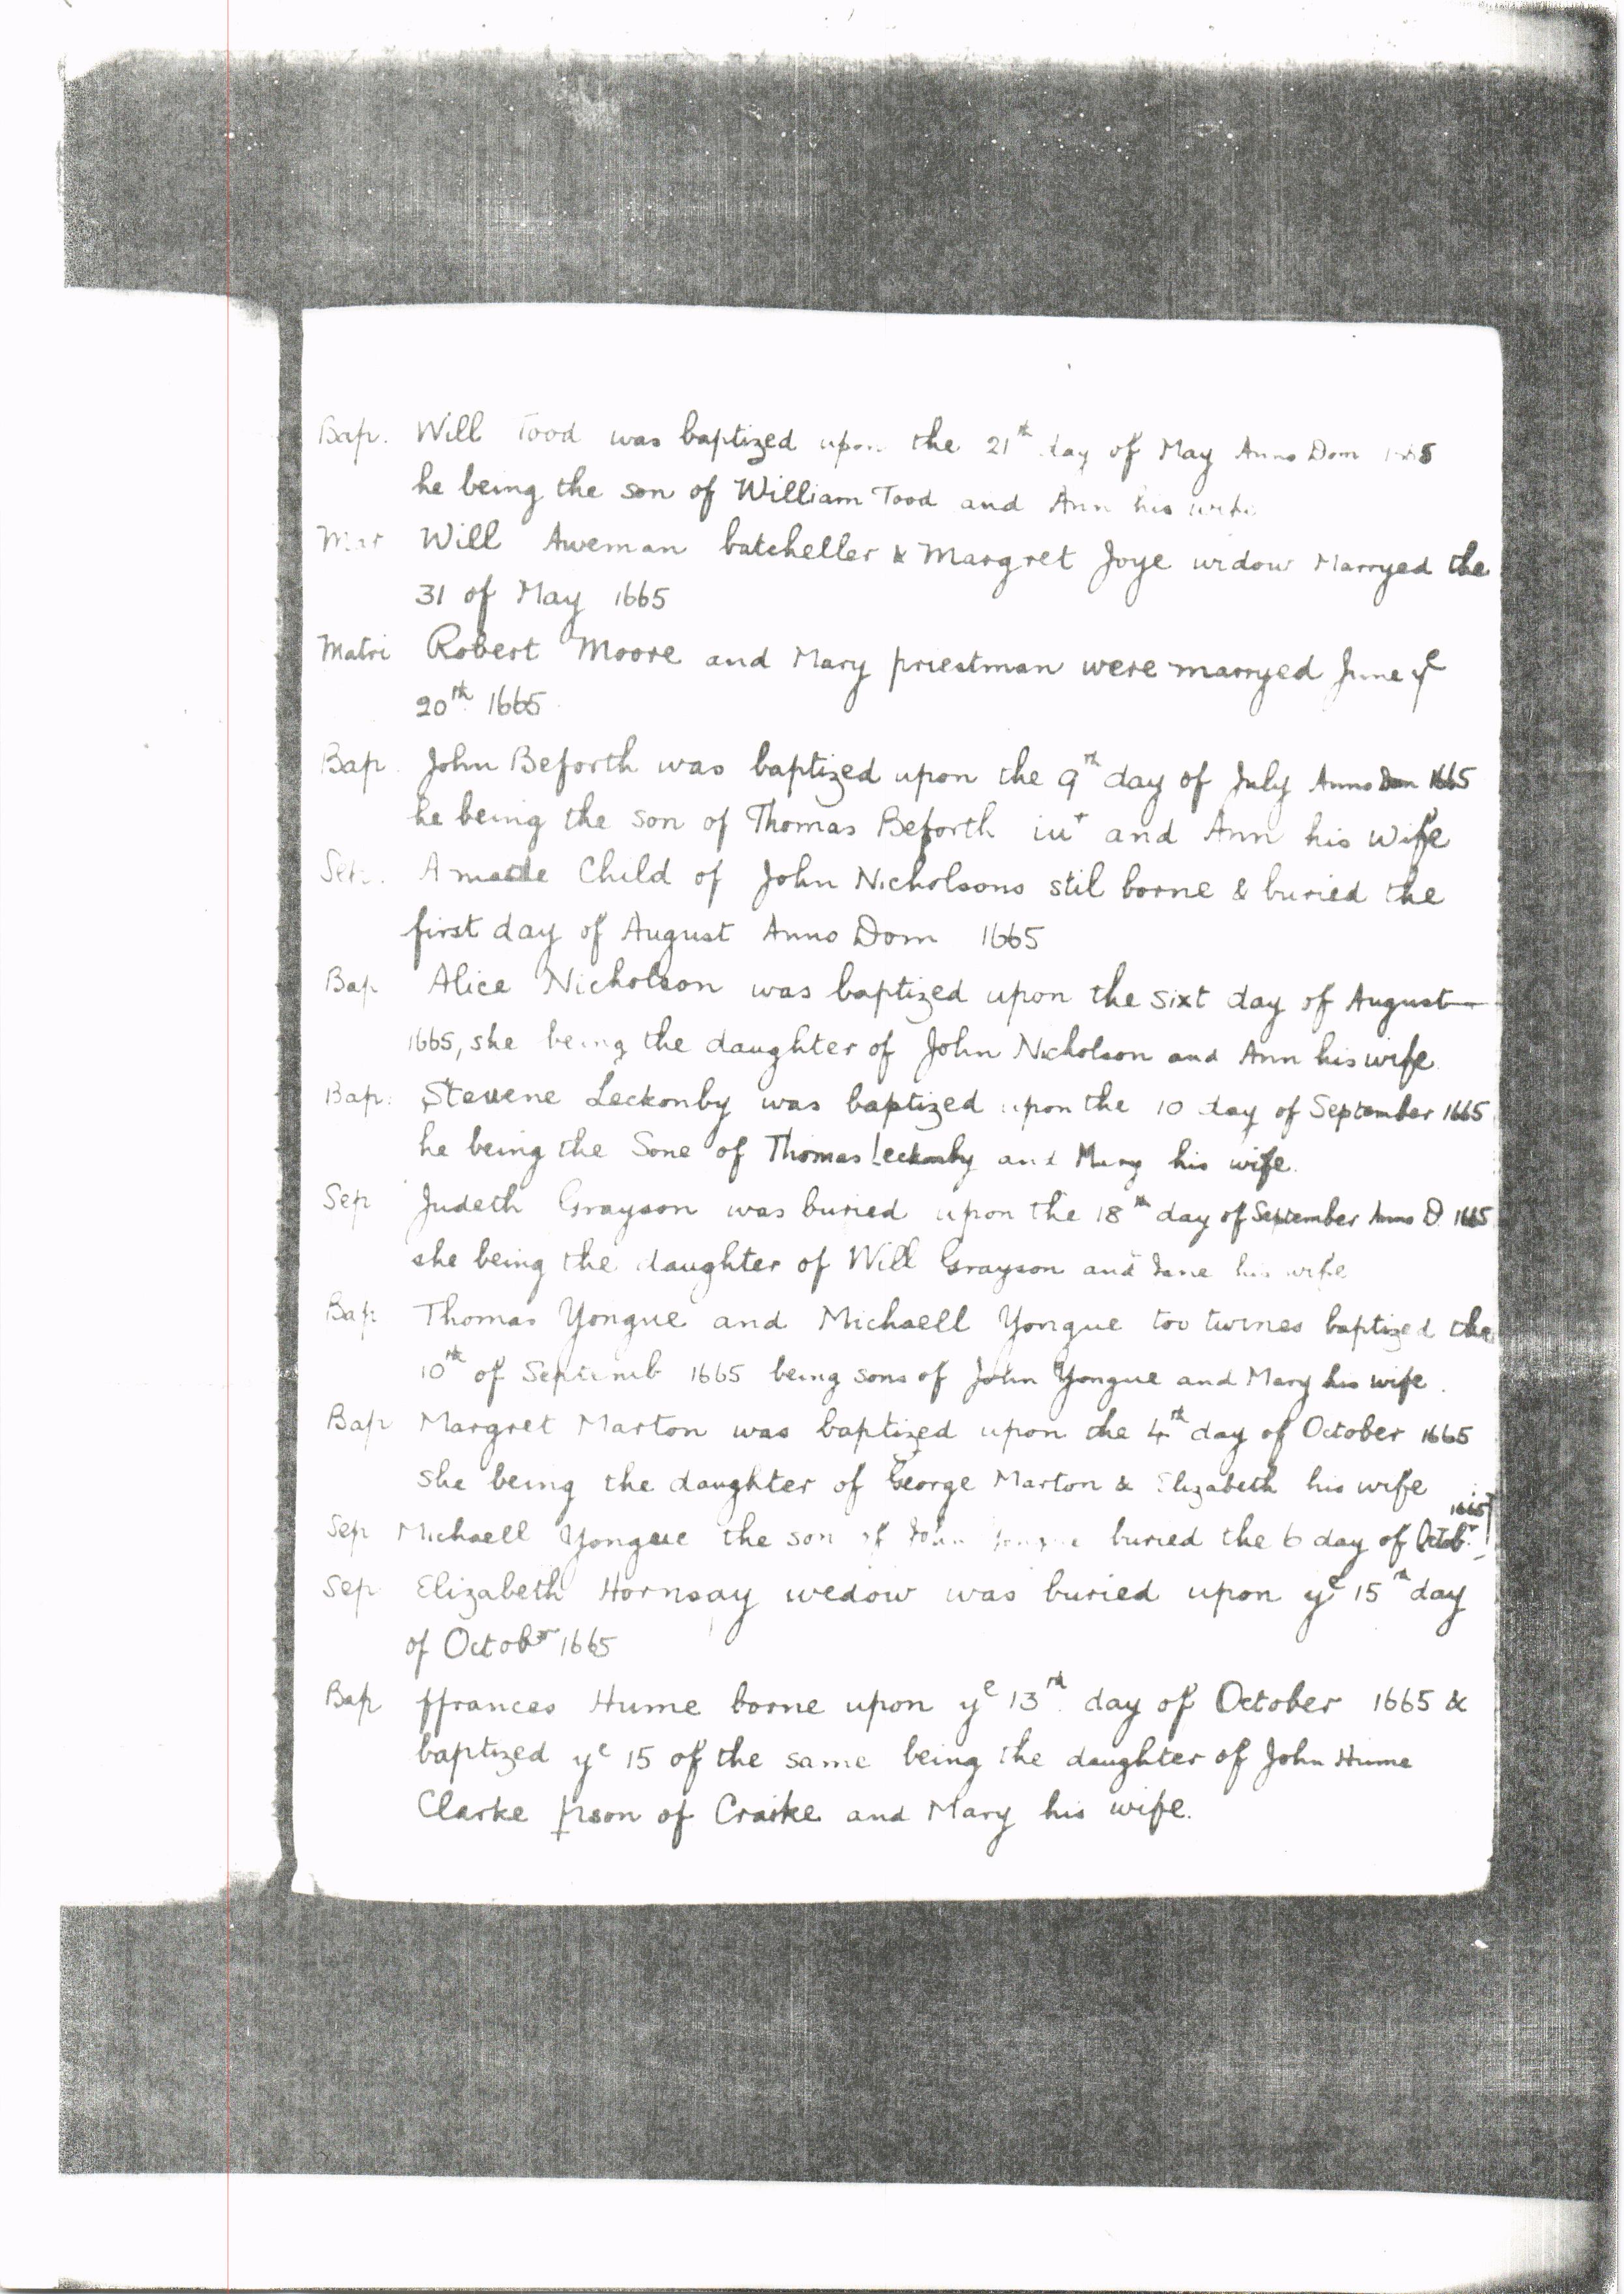 Bap. Will Tood was baptized upon the 21th day of May Anno Dom 1665
he being the son of William Tood and Ann his wife
Mar Will Aweman batcheller & Margret Joye widow Marryed the
31 of May 1665
Matri Robert Moore and Mary priestman were marryed June ye
20th 1665
Bap. John Beforth was baptized upon the 9th day of July Anno Dom 1665
he being the son of Thomas Beforth iu+ and Ann his wife
A male Child of John Nicholsons stil borne & buried the
first day of August Anno Dom 1665
Bap Alice Nicholson was baptized upon the sixt day of August
1665, she being the daughter of John Nicholson and Ann his wife
Bap: Stevene Leckonby was baptized upon the 10 day of September 1665
he being the Sone of Thomas Leckonby and Mary his wife.
Sep Judeth Grayson was buried upon the 18th day of September Anno D. 1665
she being the daughter of Will Grayson and Jane his wife
Bap Thomas Yongue and Michaell Yongue too twines baptized the
10th of Septemb 1665 being sons of John Yongue and Mary his wife.
Bap Margret Marton was baptized upon the 4th day of October 1665
she being the daughter of George Marton & Elizabeth his wife
1665
Sep Michaell Yongue the son of John Yongue buried the 6 day of Octobr
Sep Elizabeth Hornsay wedow was buried upon ye 15th day
of Octobr 1665
Bap ffrances Hume borne upon ye 13th day of October 1665 &
baptized ye 15 of the same being the daughter of John Hume
Clarke prson of Craike and Mary his wife.